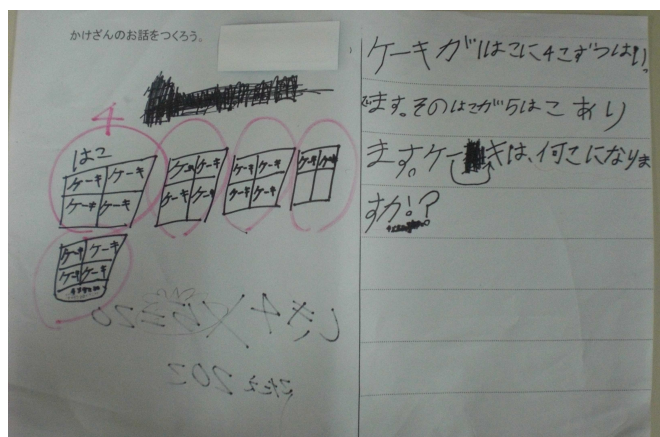 かけざんのお話をつくろう。
4
はこ
ケーキ ケーキ
ケーキ ケーキ
ケーキ ケーキ
ケーキ ケーキ
ケーキ ケーキ
ケーキ ケーキ
ケーキ ケーキ
ケーキ ケーキ
ケーキ ケーキ
しき4×5=20
こたえ 20こ
ケーキが1はこに4こずつはいっ
てます。そのはこが5はこ あり
ます。ケーキは、何こになりま
すか!?